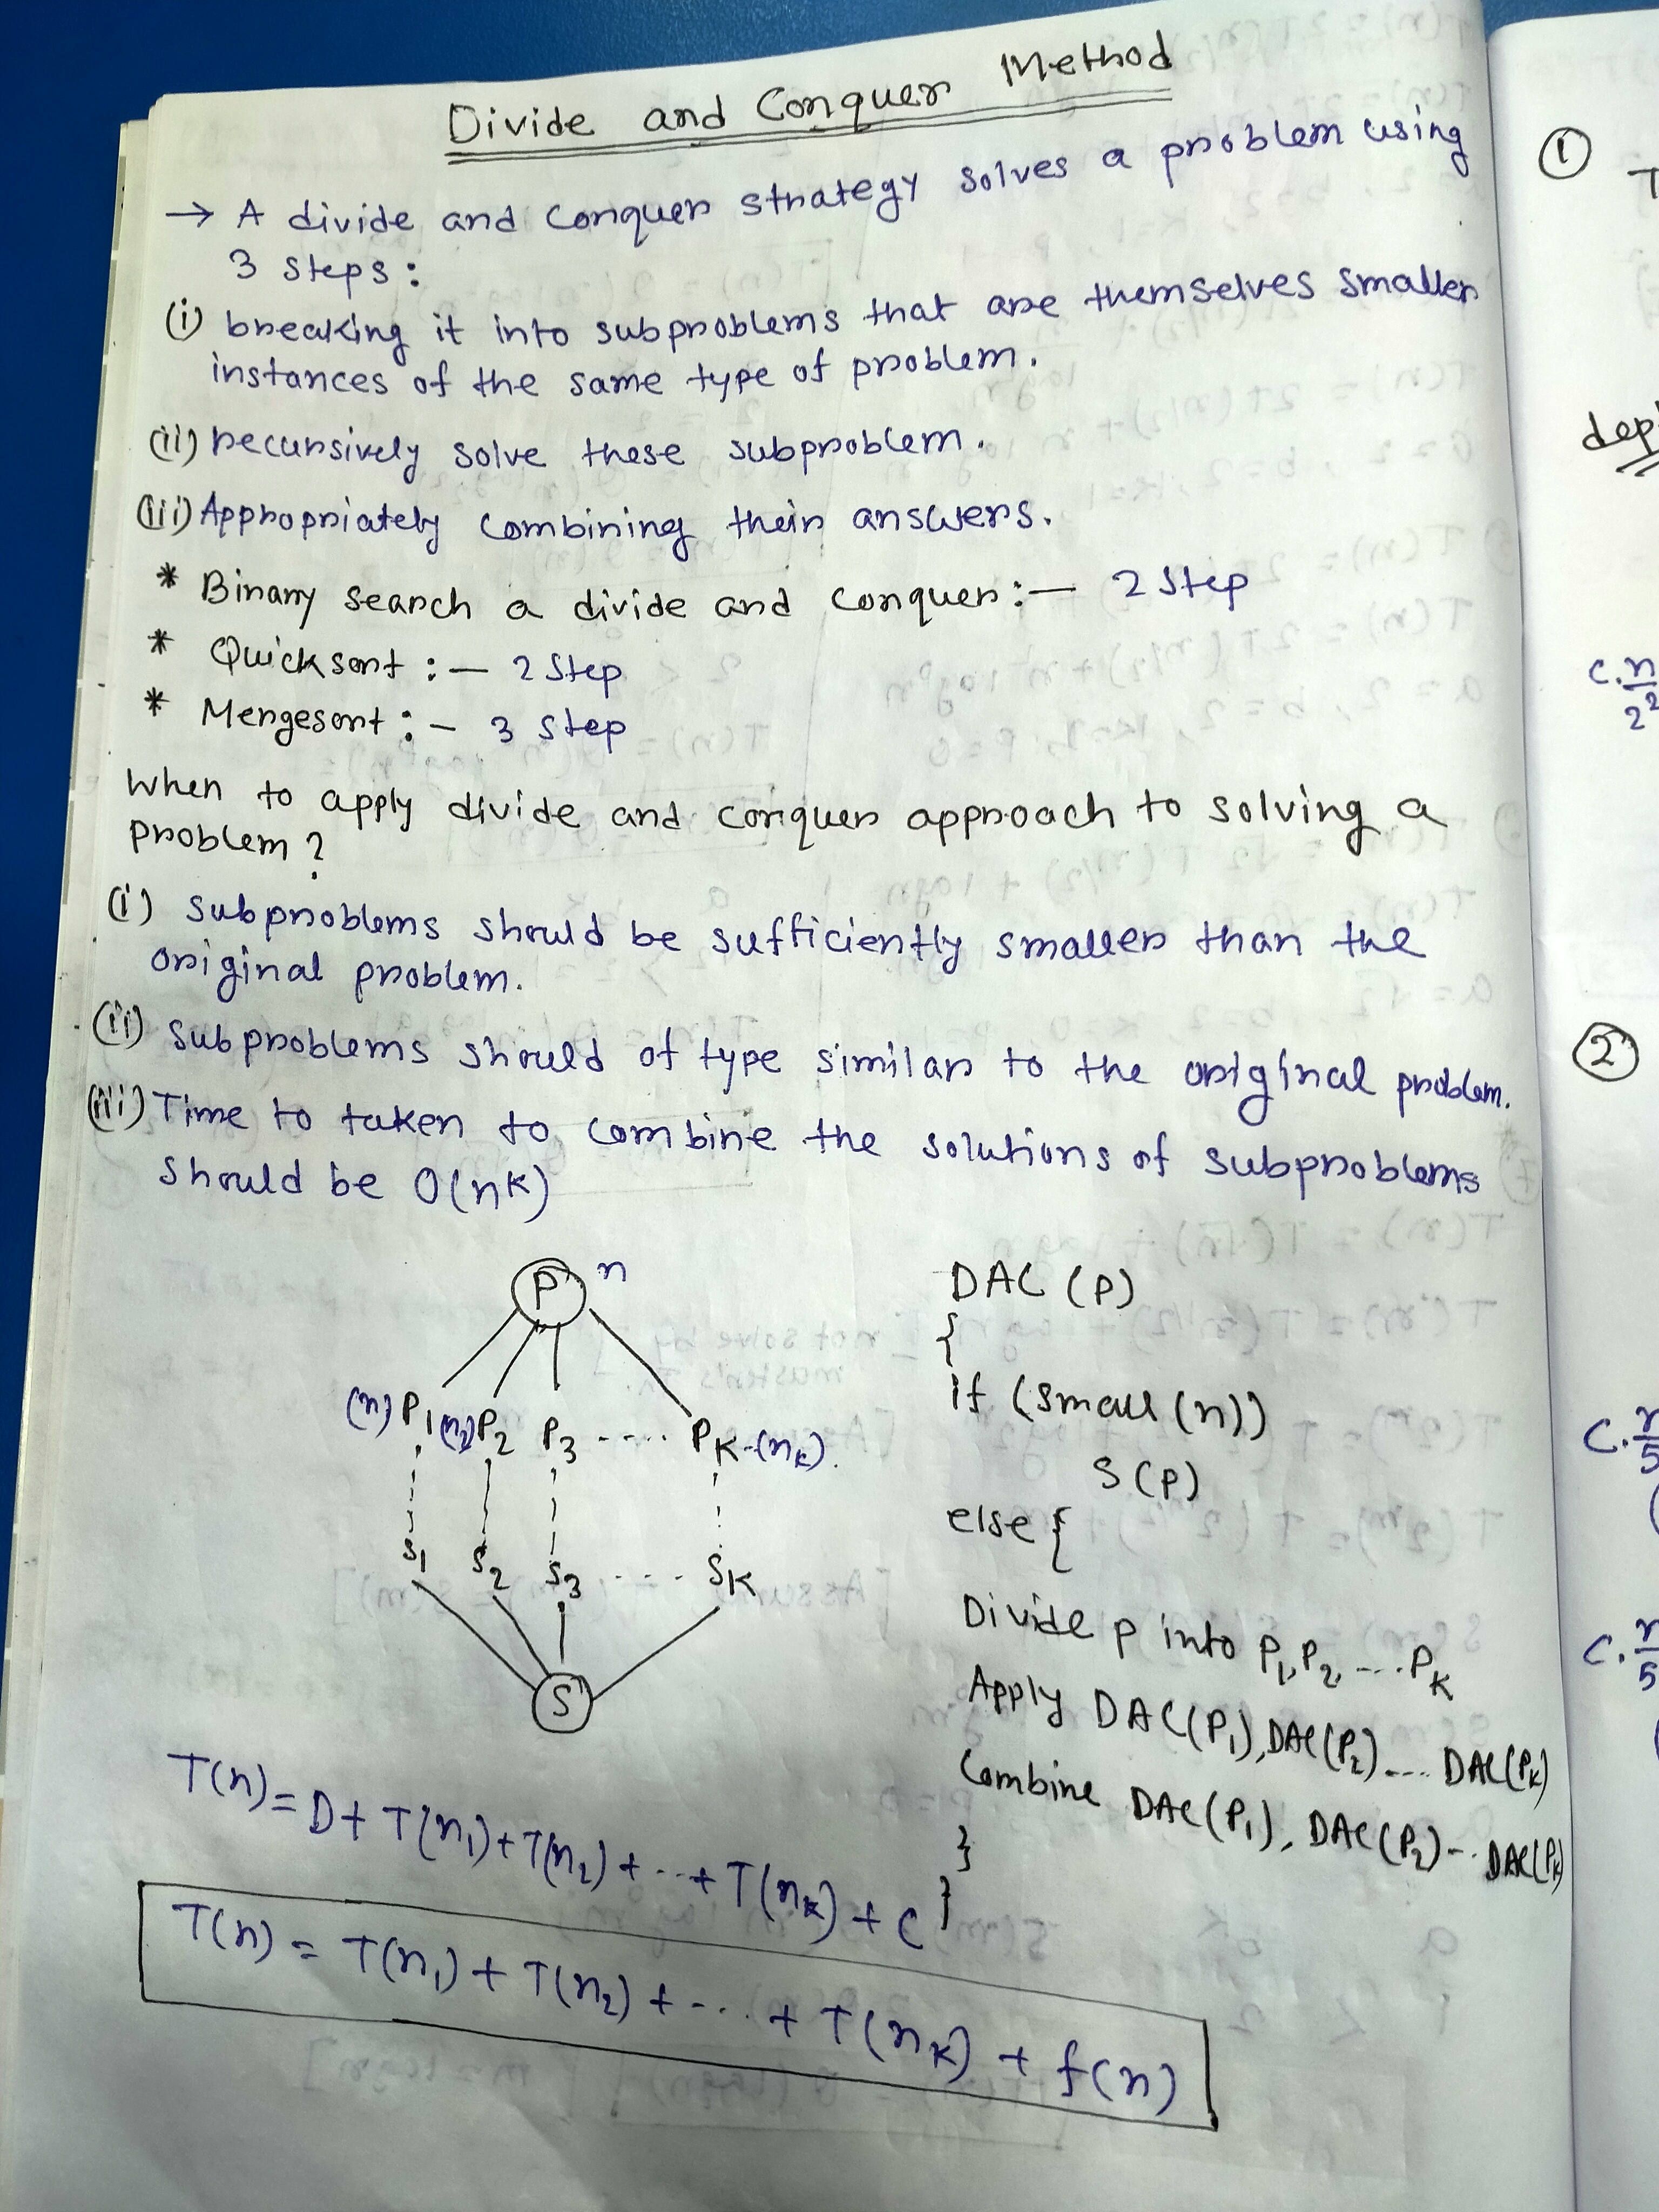 Divide and Conquer Method
→ A divide and conquer strategy solves a problem using
3 steps:
(i) breaking it into subproblems that are themselves smaller
instances of the same type of problem.
(ii) recursively solve these subproblem.
(iii) Appropriately combining their answers.
* Binary search a divide and conquer :— 2 Step
* Quicksort :— 2 Step
* Mergesort :— 3 Step
When to apply divide and conquer approach to solving a
problem?
(i) subproblems should be sufficiently smaller than the
original problem.
(ii) Subproblems should of type similar to the original problem.
(iii) Time to taken to combine the solutions of subproblems
should be O(nk)
P n
(n) P1 (n2) P2 P3 .... PK-(nk).
S1 S2 S3 .... SK
S
DAC (P)
{
if (small (n))
S (P)
else {
Divide P into P1, P2, .... PK
Apply DAC(P1), DAC(P2) .... DAC(PK)
Combine DAC(P1), DAC(P2) -.. DAC(PK)
}
}
T(n) = D + T(n1) + T(n2) + ... + T(nk) + C
T(n) = T(n1) + T(n2) + .... + T(nk) + f(n)
1
T
dep
C.n
2²
2
C.
5
C.
5